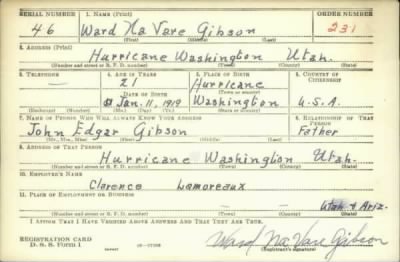 SERIAL NUMBER 1. NAME (Print) ORDER NUMBER
46 Ward Na Vare Gibson 231
(First) (Middle) (Last)
2. ADDRESS (Print)
Hurricane Washington Utah.
(Number and street or R. F. D. number) (Town) (County) (State)
3. TELEPHONE 4. AGE IN YEARS 5. PLACE OF BIRTH 6. COUNTRY OF CITIZENSHIP
— 21 Hurricane
DATE OF BIRTH (Town or county)
Jan. 11, 1919 Washington U.S.A.
(Exchange) (Number) (Mo.) (Day) (Yr.) (State or country)
7. NAME OF PERSON WHO WILL ALWAYS KNOW YOUR ADDRESS 8. RELATIONSHIP OF THAT PERSON
John Edgar Gibson Father
(Mr., Mrs., Miss) (First) (Middle) (Last)
9. ADDRESS OF THAT PERSON
Hurricane Washington Utah.
(Number and street or R. F. D. number) (Town) (County) (State)
10. EMPLOYER'S NAME
Clarence Lamoreaux
11. PLACE OF EMPLOYMENT OR BUSINESS
Utah & Ariz.
(Number and street or R. F. D. number) (Town) (County) (State)
I AFFIRM THAT I HAVE VERIFIED ABOVE ANSWERS AND THAT THEY ARE TRUE.
REGISTRATION CARD
D. S. S. FORM 1 Ward Na Vare Gibson
(Registrant's signature)